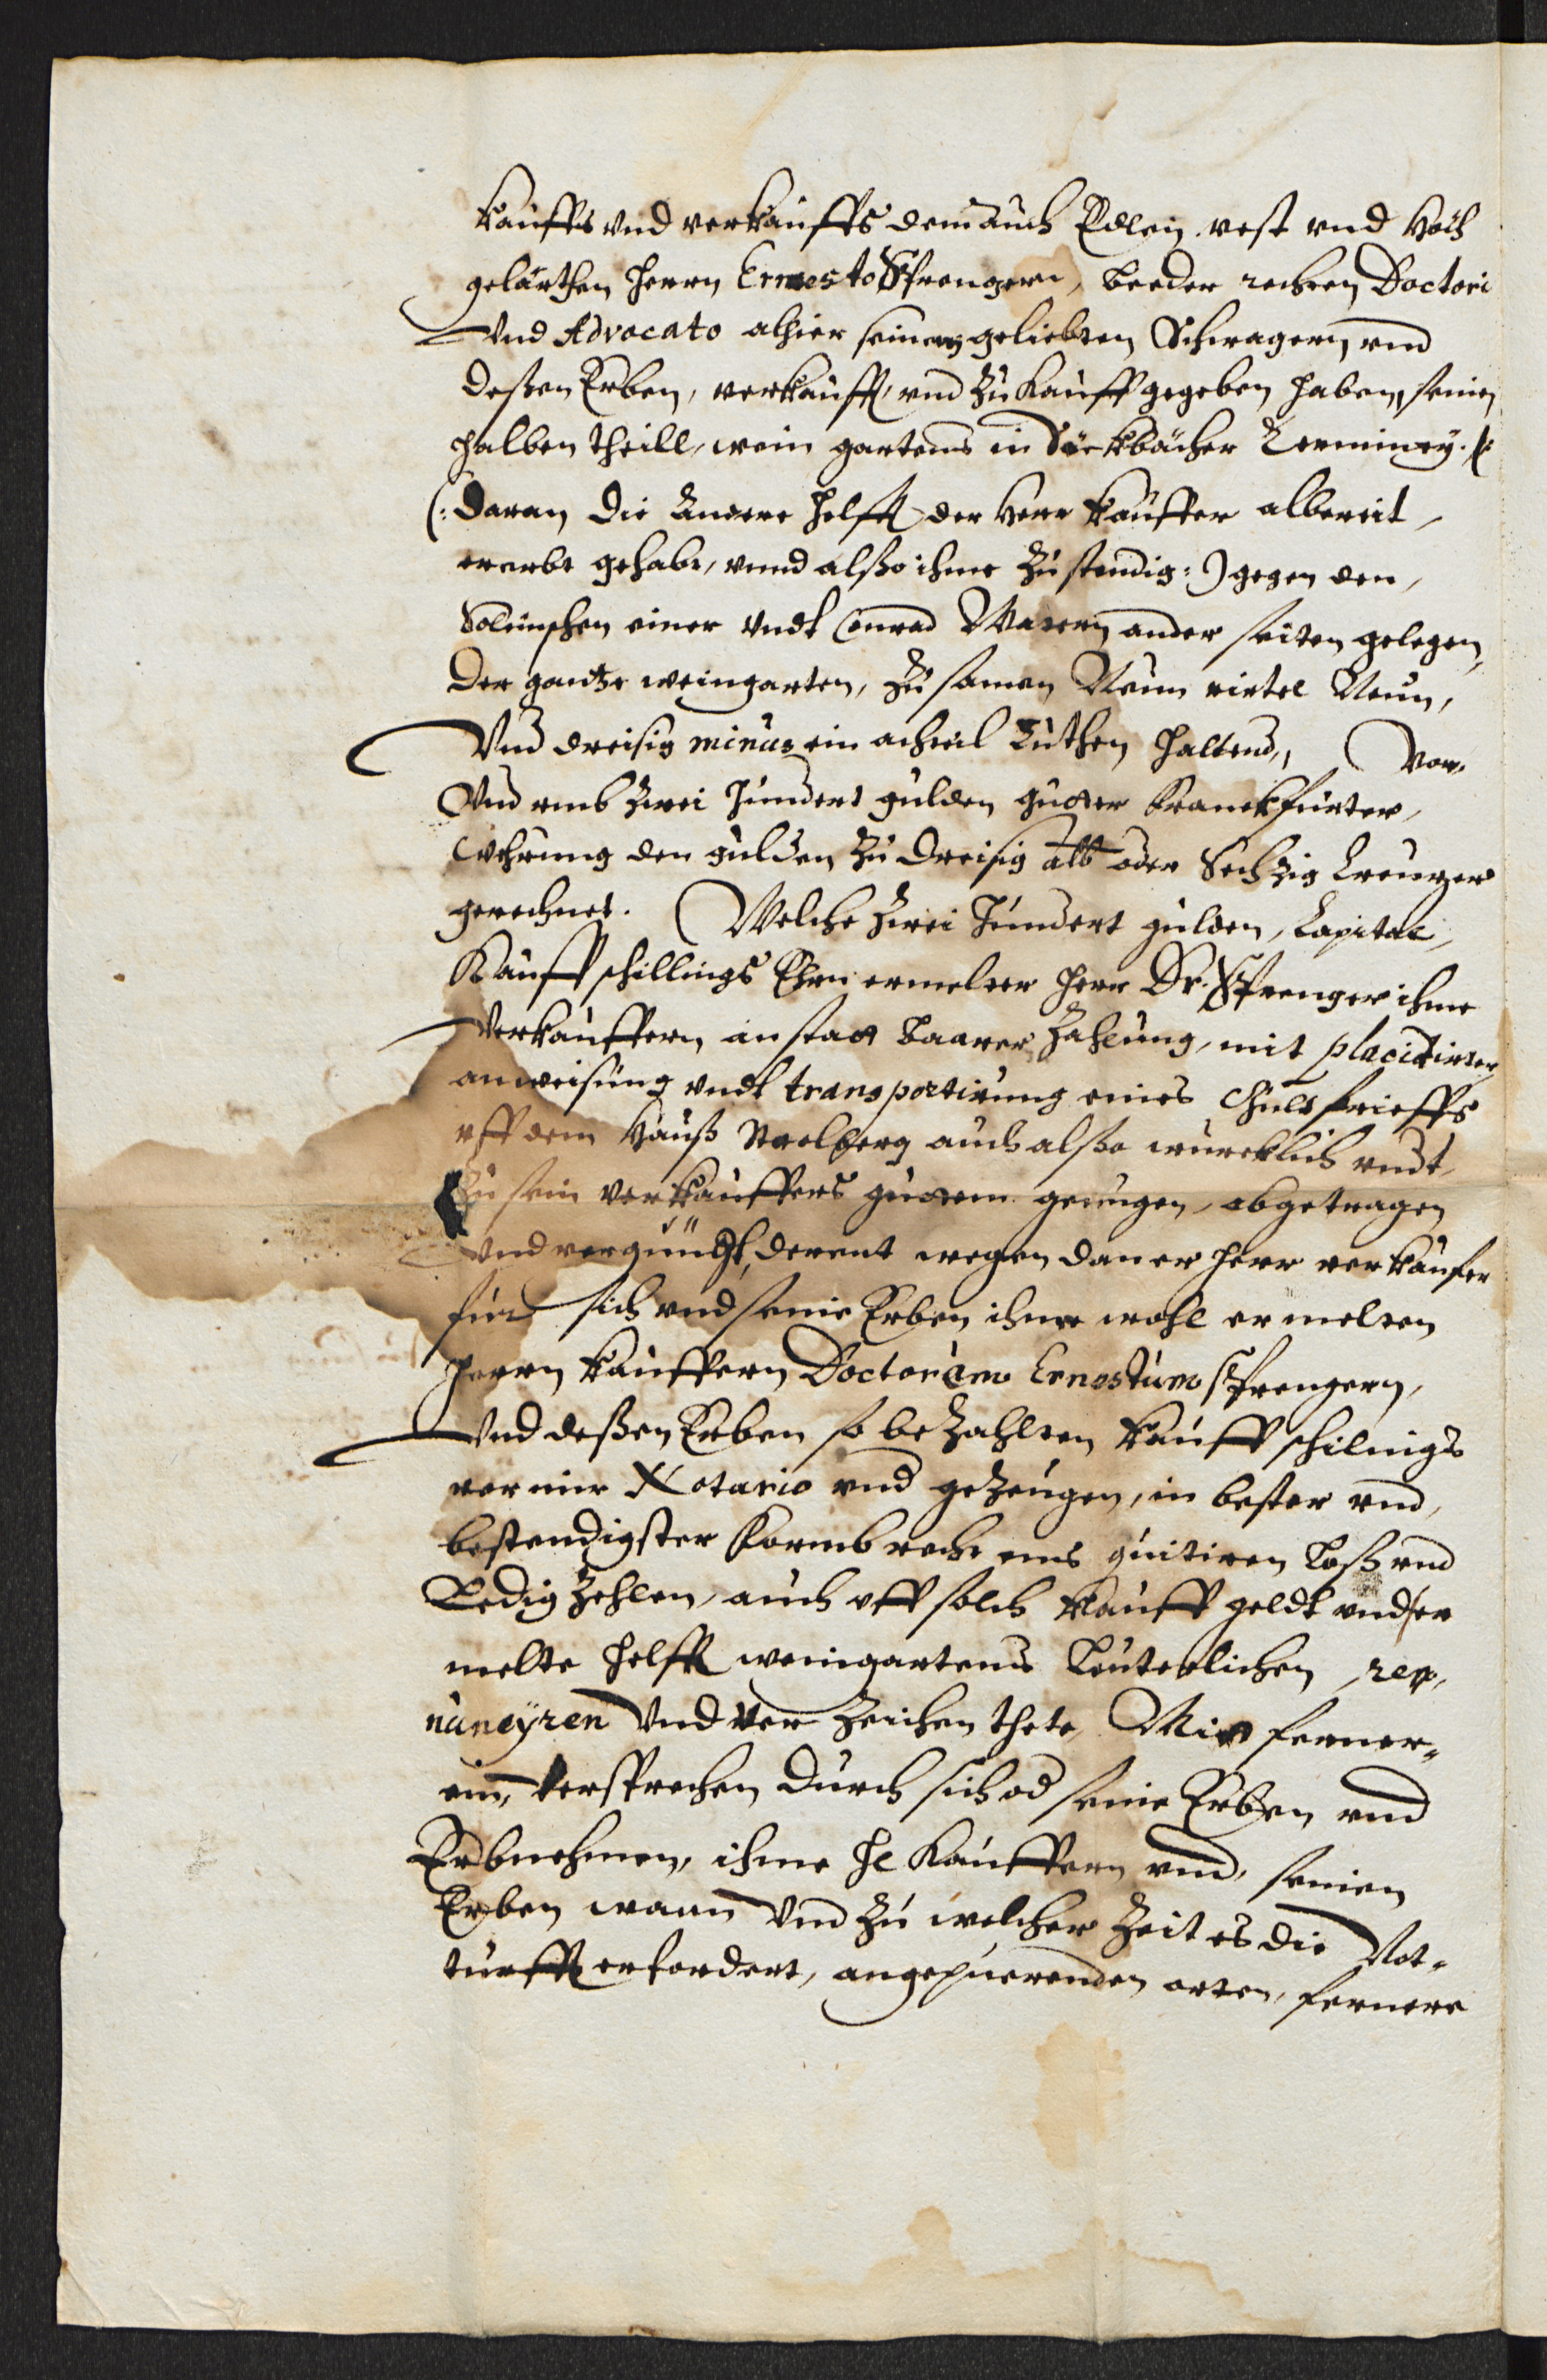 Kauffs vnd verkauffs dem auch Edlen vest vnd Hoch
gelärthen Herrn Ernesto Sprengern, beeder rechten Doctori
Vnd Advocato alhier seinem geliebten Schwagern vnd
deßen Erben, verkaufft, vnd zu Kauff gegeben haben, seinen
halben theill, wein gartens in Seckbächer Terminey.
(: daran die Andere helfft der Herr Kauffer albereit,
ererbt gehabt, vnnd alßo ihme zustendig :) gegen den,
Solmischen einer Vndt Conrad Mavern ander seiten gelegen,
Der gantze weingarten, zu samen Neun virtel Neun,
Vnd dreisig minus ein achteil Ruthen haltend, Vor.
Vnd vmb zwei Hundert gulden gutter Franckfurter,
Wehrung den gulden zu Dreisig alb oder Sechzig Creutzer
gerechnet. Welche zwei Hundert gulden, Capital,
Kauffschillings Ehrn ermelter Herr Dr. Sprenger ihme
Verkauffern anstatt baarer Zahlung, mit placidirter
anweisung vndt transportirung eines Schultbrieffs
vff dem Hauß auch alßo würcklich vndt
Zu sein verkauffers guttem genugen, abgetragen
Vnd vergnüegt, derent wegen dan er Herr verkaufer
für sich vnd seine Erben ihme wohl ermelten
Herrn Kauffern Doctorem Ernestum Sprengern,
Vnd deßen Erben so bezahlten Kauffschillings
vor mir Notario vnd gezeugen, in bester vnd,
bestendigster Formb rechtens quitiren Loß vnd
Ledig Zehlen, auch vff solch Kauff geldt vnd er
melte helfft weingartens leuterlichen ren,
nuncyren Vnd Verzeichen thete, Mit ferner„
em, Versprechen Durch sich od seine Erben vnd
Erbnehmen, ihme H Kauffern vnd, seinen
Erben wann Vnd zu welcher Zeit es die Not„
turfft erfordert, angepuerenden orten, fernere